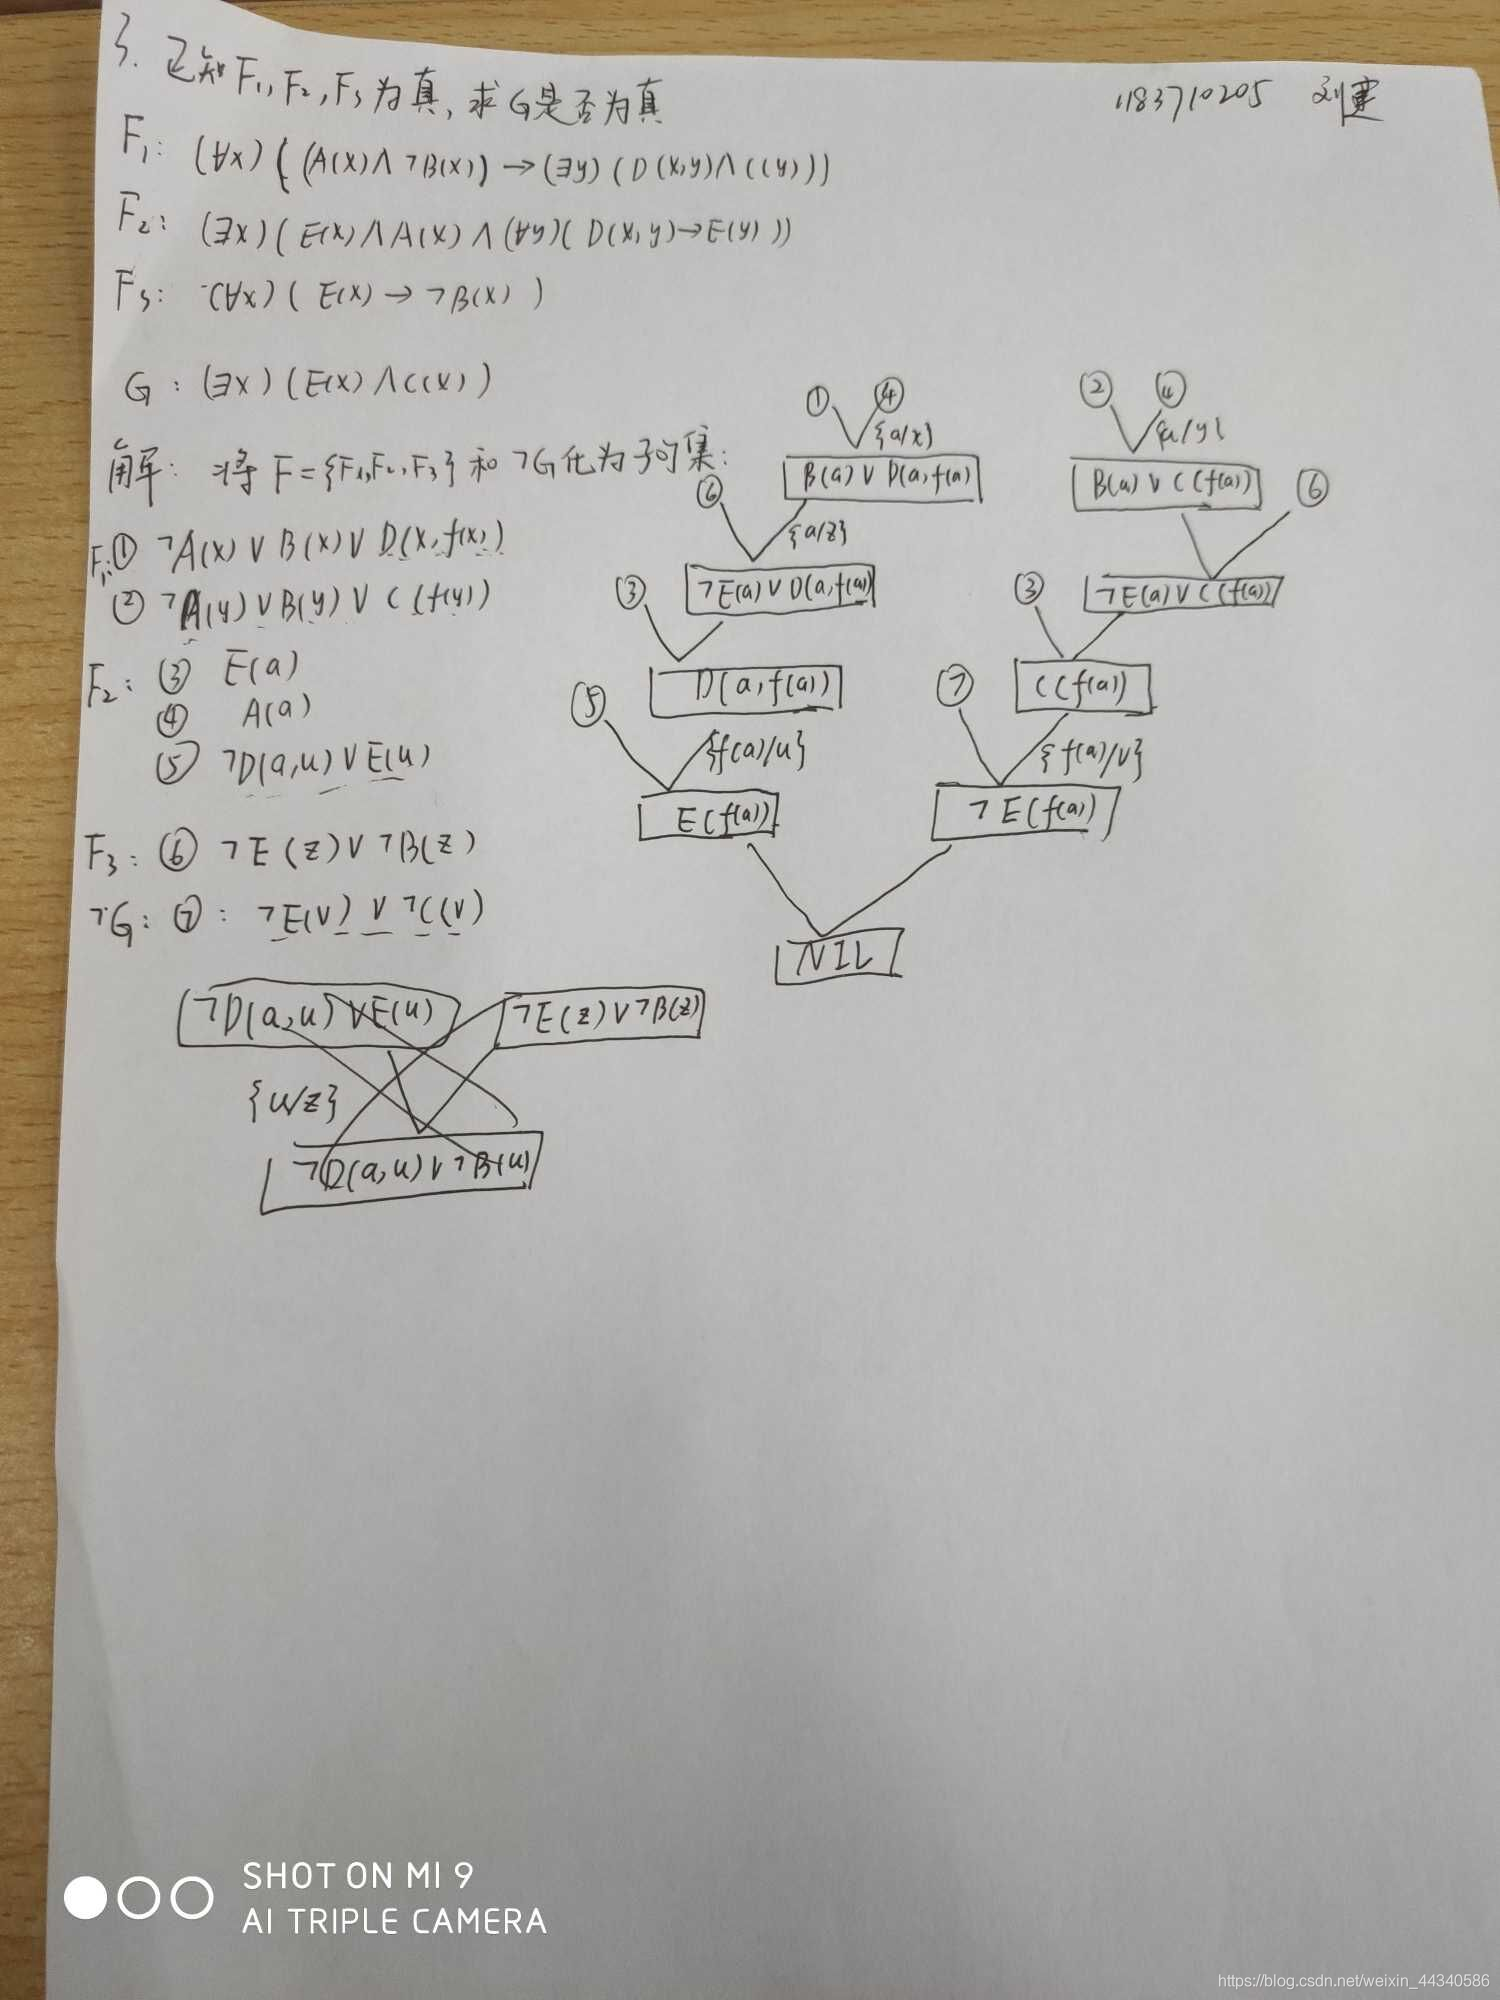 3. 已知F₁,F₂,F₃为真,求G是否为真
1183710205 刘建
F₁: (∀x)((A(x)∧¬B(x))→(∃y)(D(x,y)∧C(y)))
F₂: (∃x)(E(x)∧A(x)∧(∀y)(D(x,y)→E(y)))
F₃: (∀x)(E(x)→¬B(x))
G: (∃x)(E(x)∧C(x))
解: 将F={F₁,F₂,F₃}和¬G化为子句集:
F₁: ① ¬A(x)∨B(x)∨D(x,f(x))
② ¬A(y)∨B(y)∨C(f(y))
F₂: ③ E(a)
④ A(a)
⑤ ¬D(a,u)∨E(u)
F₃: ⑥ ¬E(z)∨¬B(z)
¬G: ⑦: ¬E(v)∨¬C(v)
① ④
{a/x}
B(a)∨D(a,f(a))
⑥
{a/z}
¬E(a)∨D(a,f(a))
③
D(a,f(a))
⑤
{f(a)/u}
E(f(a))
② ④
{a/y}
B(a)∨C(f(a))
⑥
¬E(a)∨C(f(a))
③
C(f(a))
⑦
{f(a)/v}
¬E(f(a))
NIL
¬D(a,u)∨E(u) ¬E(z)∨¬B(z)
{u/z}
¬D(a,u)∨¬B(u)
SHOT ON MI 9
AI TRIPLE CAMERA
https://blog.csdn.net/weixin_44340586